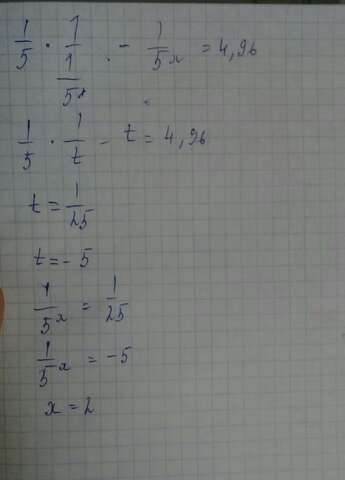 1/5 · 1/(1/5^x) · - 1/5^x = 4,96
1/5 · 1/t - t = 4,96
t = 1/25
t = - 5
1/5^x = 1/25
1/5^x = -5
x = 2